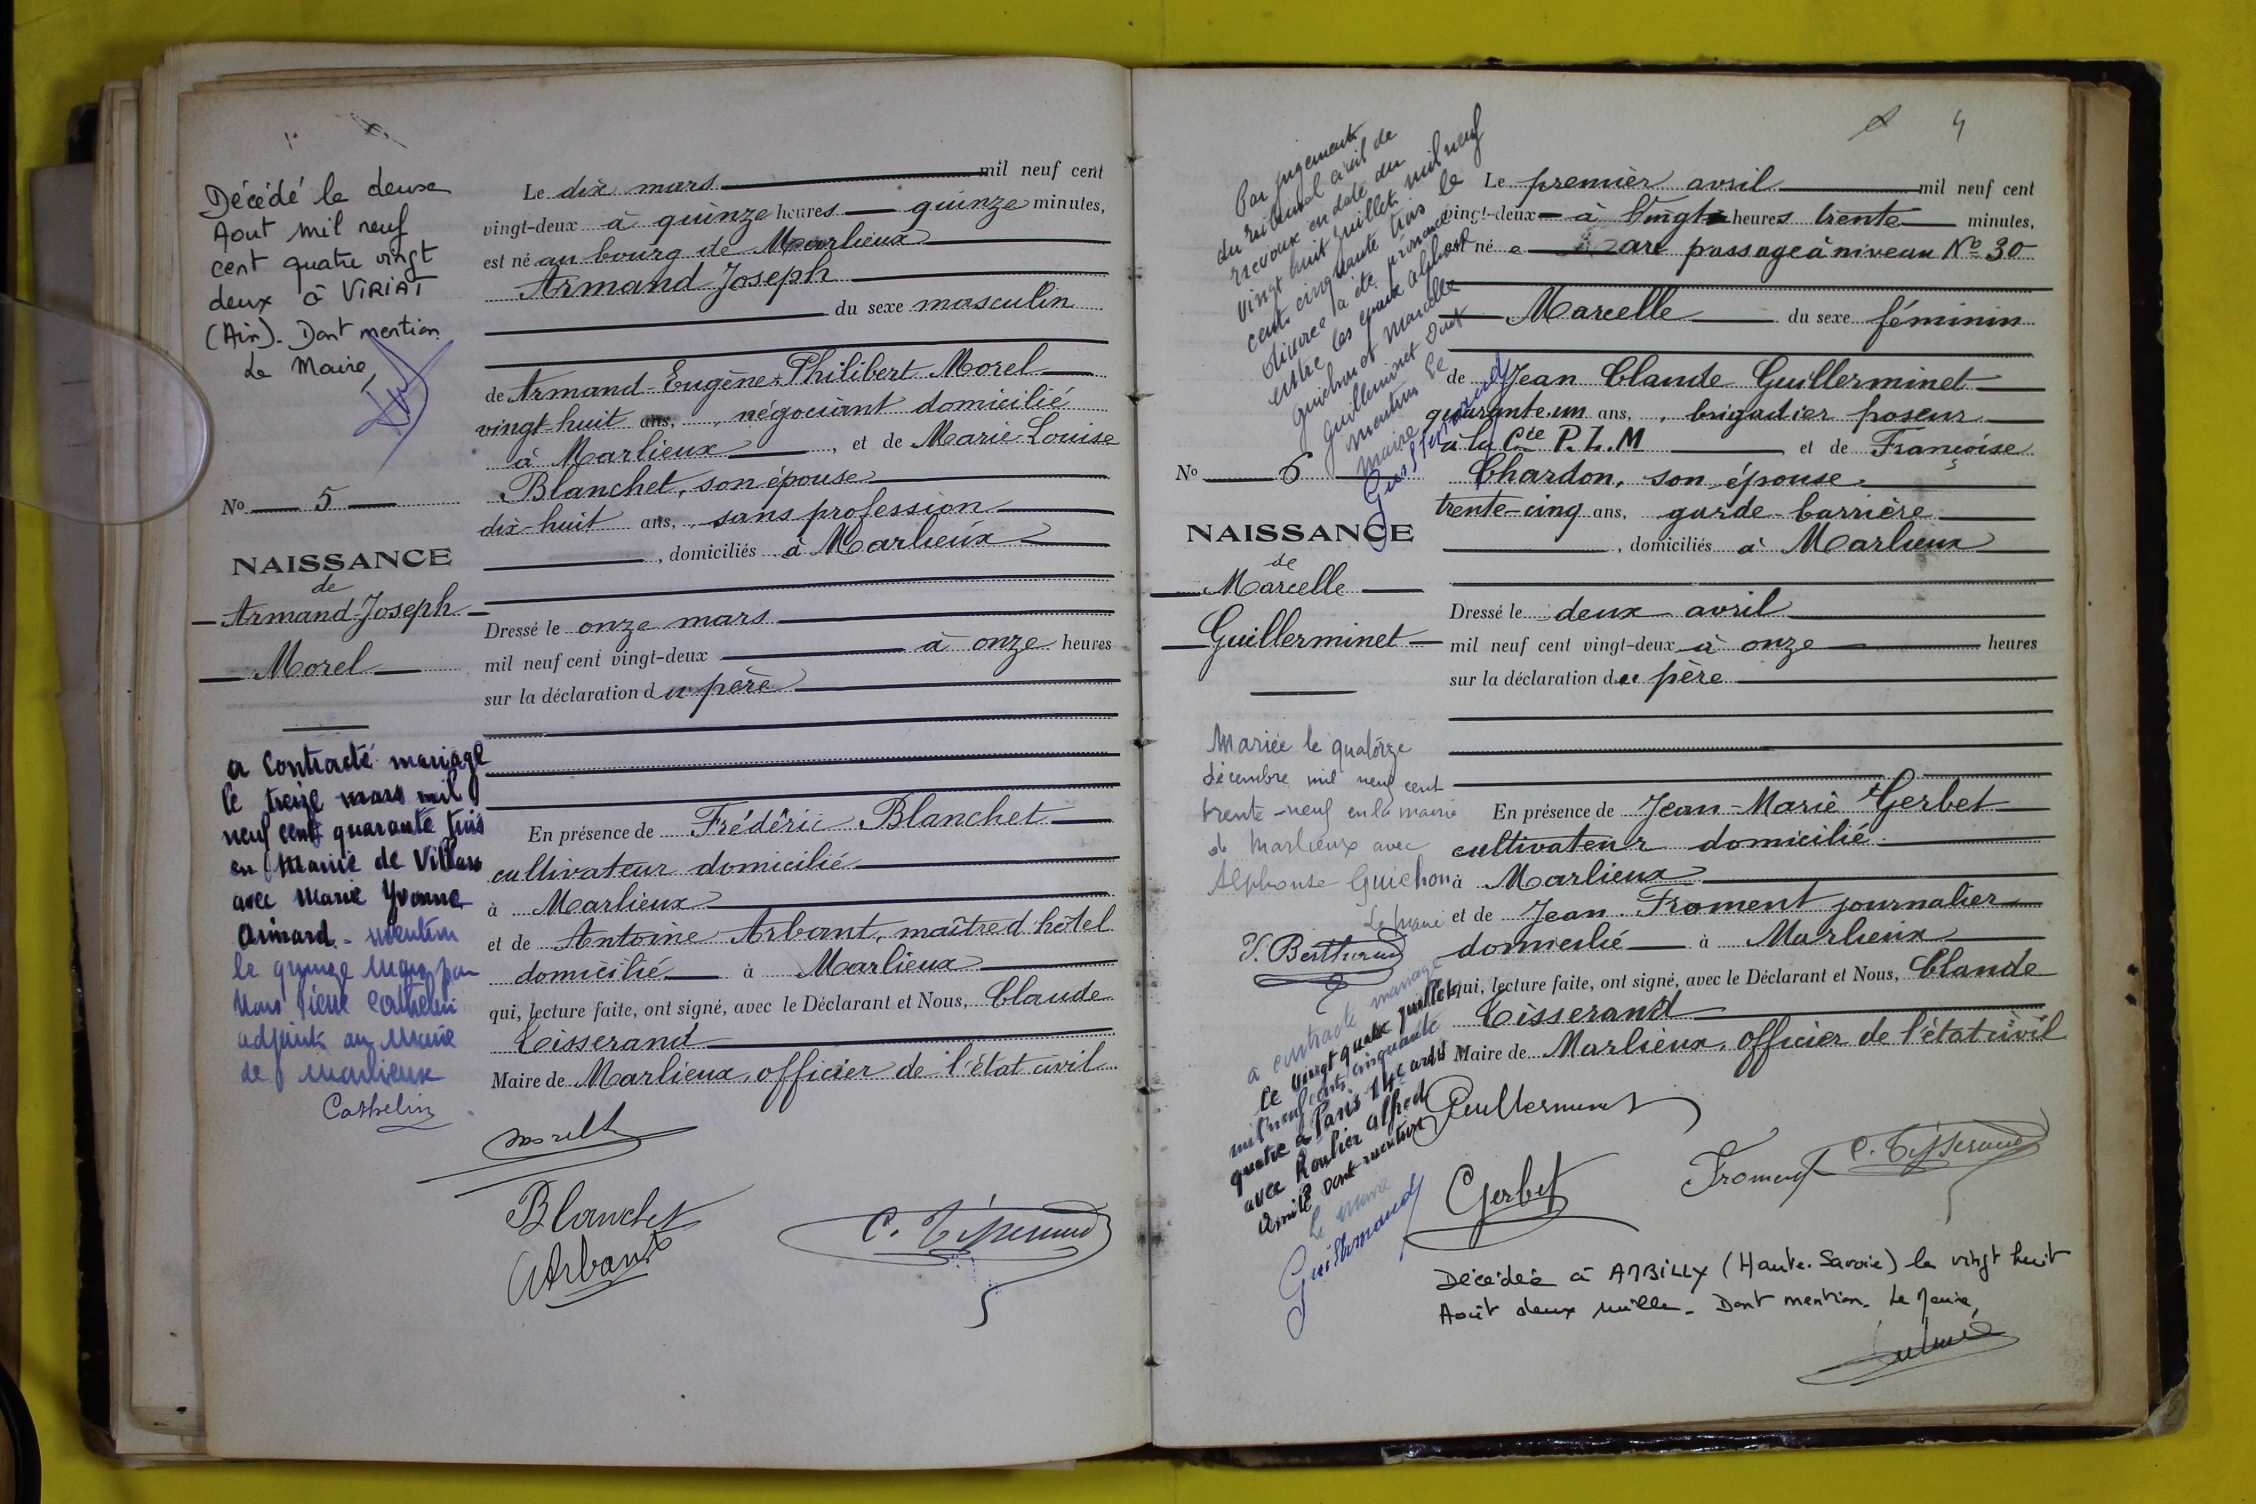 Décédé le deuxe
Aout mil neuf
cent quatre vingt
deux à VIRIAT
(Ain). Dont mention
Le Maire,
No 5
NAISSANCE
de
Armand-Joseph
Morel
a contracté mariage
le treize mars mil
neuf cent quarante trois
en Mairie de Villars
avec Marie Yvonne
mention
le quinze mars par
Nous
adjoint au Maire
de Marlieux
Cathelin
Le dix mars mil neuf cent
vingt-deux à quinze heures quinze minutes,
est né au bourg de Marlieux
Armand Joseph
du sexe masculin
de Armand-Eugène-Philibert Morel
vingt-huit ans, négociant domicilié
à Marlieux, et de Marie-Louise
Blanchet, son épouse
dix-huit ans, sans profession
, domiciliés à Marlieux
Dressé le onze mars
mil neuf cent vingt-deux à onze heures
sur la déclaration du père
En présence de Frédéric Blanchet
cultivateur domicilié
à Marlieux
et de Antoine Arbant, maître d'hôtel
domicilié à Marlieux
qui, lecture faite, ont signé, avec le Déclarant et Nous, Claude
Tisserand
Maire de Marlieux, officier de l'état civil
Morel
Blanchet
Arbant
C. Tisserand
4
Par jugement
du tribunal civil de
Trévoux en date du
vingt huit juillet mil neuf
cent cinquante trois le
divorce a été prononcé
entre les époux Alphonse
Guichon et Marcelle
Guillerminet dont
mention le
maire
No 6
NAISSANCE
de
Marcelle
Guillerminet
Mariée le quatorze
décembre mil neuf cent
trente-neuf en la mairie
de Marlieux avec
Alphonse Guichon
Le Maire
a contracté mariage
le vingt quatre juillet
mil neuf cent cinquante
quatre à Paris 14e ardt
avec Roulier Alfred
dont mention
le maire
Le premier avril mil neuf cent
vingt-deux à vingt heures trente minutes,
est né e passage à niveau No 30
Marcelle du sexe féminin
de Jean Claude Guillerminet
quarante-un ans, brigadier poseur
à la Cie P.L.M et de Françoise
Chardon, son épouse
trente-cinq ans, garde-barrière
, domiciliés à Marlieux
Dressé le deux avril
mil neuf cent vingt-deux à onze heures
sur la déclaration du père
En présence de Jean-Marie Gerbet
cultivateur domicilié
à Marlieux
et de Jean Froment journalier
domicilié à Marlieux
qui, lecture faite, ont signé, avec le Déclarant et Nous, Claude
Tisserand
Maire de Marlieux, officier de l'état civil
Guillerminet
Froment C. Tisserand
Gerbet
Décédée à AMBILLY (Haute-Savoie) le vingt huit
Août deux mille. Dont mention. Le Maire,